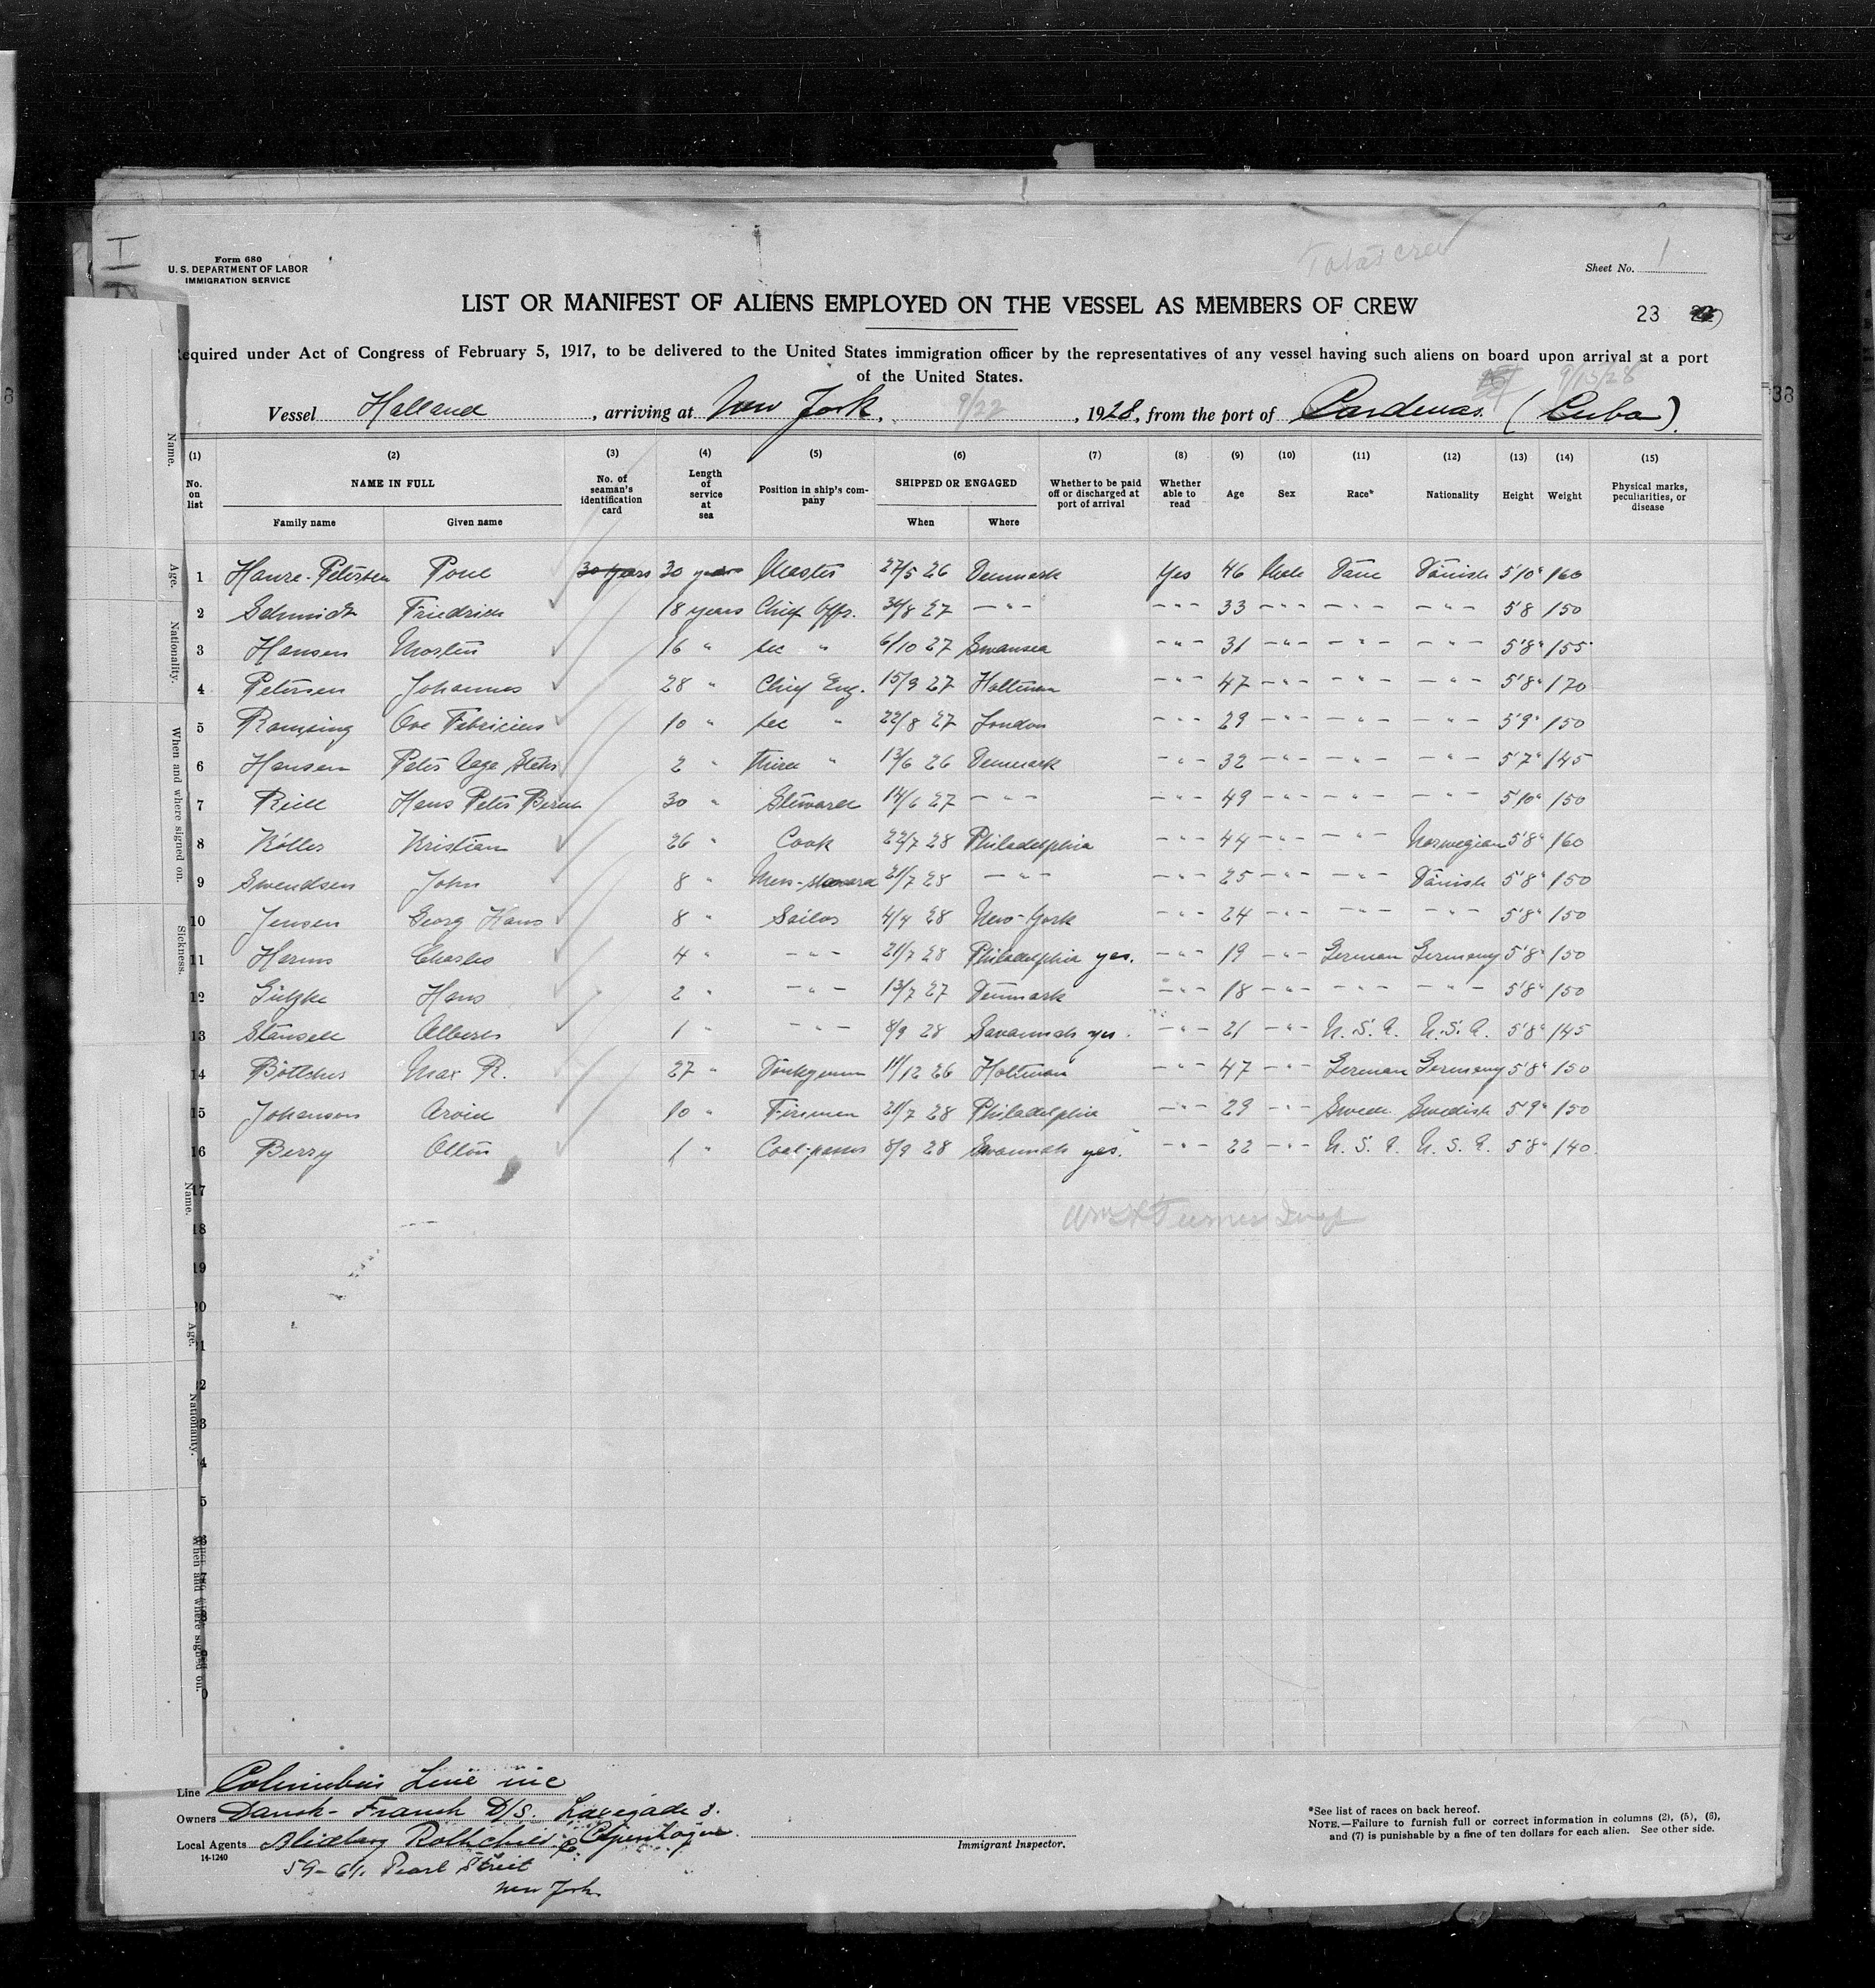 Form 680
U. S. DEPARTMENT OF LABOR
IMMIGRATION SERVICE
Total crew
Sheet No. 1
LIST OR MANIFEST OF ALIENS EMPLOYED ON THE VESSEL AS MEMBERS OF CREW
23
equired under Act of Congress of February 5, 1917, to be delivered to the United States immigration officer by the representatives of any vessel having such aliens on board upon arrival at a port
of the United States.
9/15/28
Vessel Halland, arriving at New York, 9/22, 1928, from the port of Cardenas. (Cuba).
(1) (2) (3) (4) (5) (6) (7) (8) (9) (10) (11) (12) (13) (14) (15)
No. on list NAME IN FULL Family name Given name No. of seaman's identification card Length of service at sea Position in ship's company SHIPPED OR ENGAGED When Where Whether to be paid off or discharged at port of arrival Whether able to read Age Sex Race* Nationality Height Weight Physical marks, peculiarities, or disease
1 Petersen Poul 30 years 30 years Master 27/5 26 Denmark Yes 46 Male Dane Danish 5'10" 160
2 Schmidt Friedrich 18 years Chief Offr. 30/8 27 - " - - " - 33 - " - - " - - " - 5'8 150
3 Hansen Morten 16 " sec " 6/10 27 Swansea - " - 31 - " - - " - - " - 5'8" 155
4 Petersen Johannes 28 " Chief Eng. 15/9 27 Holtenau - " - 47 - " - - " - - " - 5'8" 170
5 Ove Fabricius 10 " sec " 22/8 27 London - " - 29 - " - - " - - " - 5'9" 150
6 Hansen Peter Aage 2 " third " 13/6 26 Denmark - " - 32 - " - - " - - " - 5'7" 145
7 Hans Peter 30 " Steward 14/6 27 - " - - " - 49 - " - - " - - " - 5'10" 150
8 Köller Kristian 26 " Cook 22/7 28 Philadelphia - " - 44 - " - - " - Norwegian 5'8" 160
9 Swendsen John 8 " Mess- 21/7 28 - " - - " - 25 - " - - " - Danish 5'8" 150
10 Jensen Georg Hans 8 " Sailor 4/4 28 New-York - " - 24 - " - - " - - " - 5'8" 150
11 Harms Charles 4 " - " - 21/7 28 Philadelphia yes. - " - 19 - " - German Germany 5'8" 150
12 Hans 2 " - " - 13/7 27 Denmark - " - 18 - " - - " - - " - 5'8" 150
13 Stansell Albert 1 " - " - 8/9 28 Savannah yes. - " - 21 - " - U. S. A. U. S. A. 5'8" 145
14 Böttcher Max R. 27 " Donkeyman 11/12 26 Holtenau - " - 47 - " - German Germany 5'8" 150
15 Johanson Arvid 10 " Fireman 21/7 28 Philadelphia - " - 29 - " - Swede Swedish 5'9" 150
16 Berry Olton 1 " Coal-passer 8/9 28 Savannah yes. - " - 22 - " - U. S. A. U. S. A. 5'8" 140
17
18
19
20
21
22
23
24
25
Wm Turner Insp
Name.
Age.
Nationality.
When and where signed on.
Sickness.
Name.
Age.
Nationality.
When and where signed on.
Line Columbus Line inc
Owners Dansk-Fransk D/S. 8. Copenhagen.
Local Agents Rothchild Co.
14-1240
59-61. Pearl Street
New York.
Immigrant Inspector.
*See list of races on back hereof.
NOTE.—Failure to furnish full or correct information in columns (2), (5), (6),
and (7) is punishable by a fine of ten dollars for each alien. See other side.
38